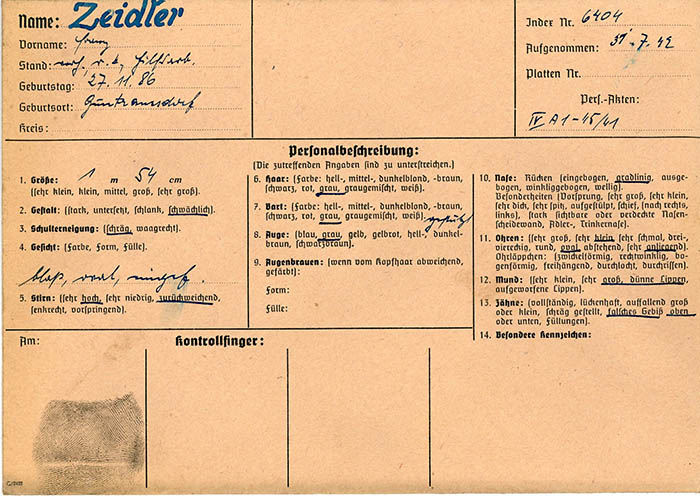 Name: Zeidler
Vorname: Franz
Stand: verh., r. k., Hilfsarb.
Geburtstag: 27.11.86
Geburtsort: Guntramsdorf
Kreis:
Index Nr. 6404
Aufgenommen: 31.7.42
Platten Nr.
Pers.-Akten:
IV A1-45/41
Personalbeschreibung:
(Die zutreffenden Angaben sind zu unterstreichen.)
1. Größe: 1 m 54 cm
(sehr klein, klein, mittel, groß, sehr groß).
2. Gestalt: (stark, untersetzt, schlank, schwächlich).
3. Schulterneigung: (schräg, waagrecht).
4. Gesicht: (Farbe, Form, Fülle).
blaß, oval, eingef.
5. Stirn: (sehr hoch, sehr niedrig, zurückweichend,
senkrecht, vorspringend).
6. Haar: (Farbe: hell-, mittel-, dunkelblond, -braun,
schwarz, rot, grau, graugemischt, weiß).
7. Bart: (Farbe: hell-, mittel-, dunkelblond, -braun,
schwarz, rot, grau, graugemischt, weiß) gestutzt
8. Auge: (blau, grau, gelb, gelbrot, hell-, dunkel-
braun, schwarzbraun).
9. Augenbrauen: (wenn vom Kopfhaar abweichend,
gefärbt):
Form:
Fülle:
10. Nase: Rücken (eingebogen, gradlinig, ausge-
bogen, winkliggebogen, wellig).
Besonderheiten (Vorsprung, sehr groß, sehr klein,
sehr dick, sehr spitz, aufgestülpt, schief, (nach rechts,
links), stark sichtbare oder verdeckte Nasen-
scheidewand, Adler-, Trinkernase).
11. Ohren: (sehr groß, sehr klein, sehr schmal, drei-
viereckig, rund, oval, abstehend, sehr anliegend).
Ohrläppchen: (zwickelförmig, rechtwinklig, bo-
genförmig, freihängend, durchlocht, durchrissen).
12. Mund: (sehr klein, sehr groß, dünne Lippen,
aufgeworfene Lippen).
13. Zähne: (vollständig, lückenhaft, auffallend groß
oder klein, schräg gestellt, falsches Gebiß oben
oder unten, Füllungen).
14. Besondere Kennzeichen:
Am:
Kontrollfinger: